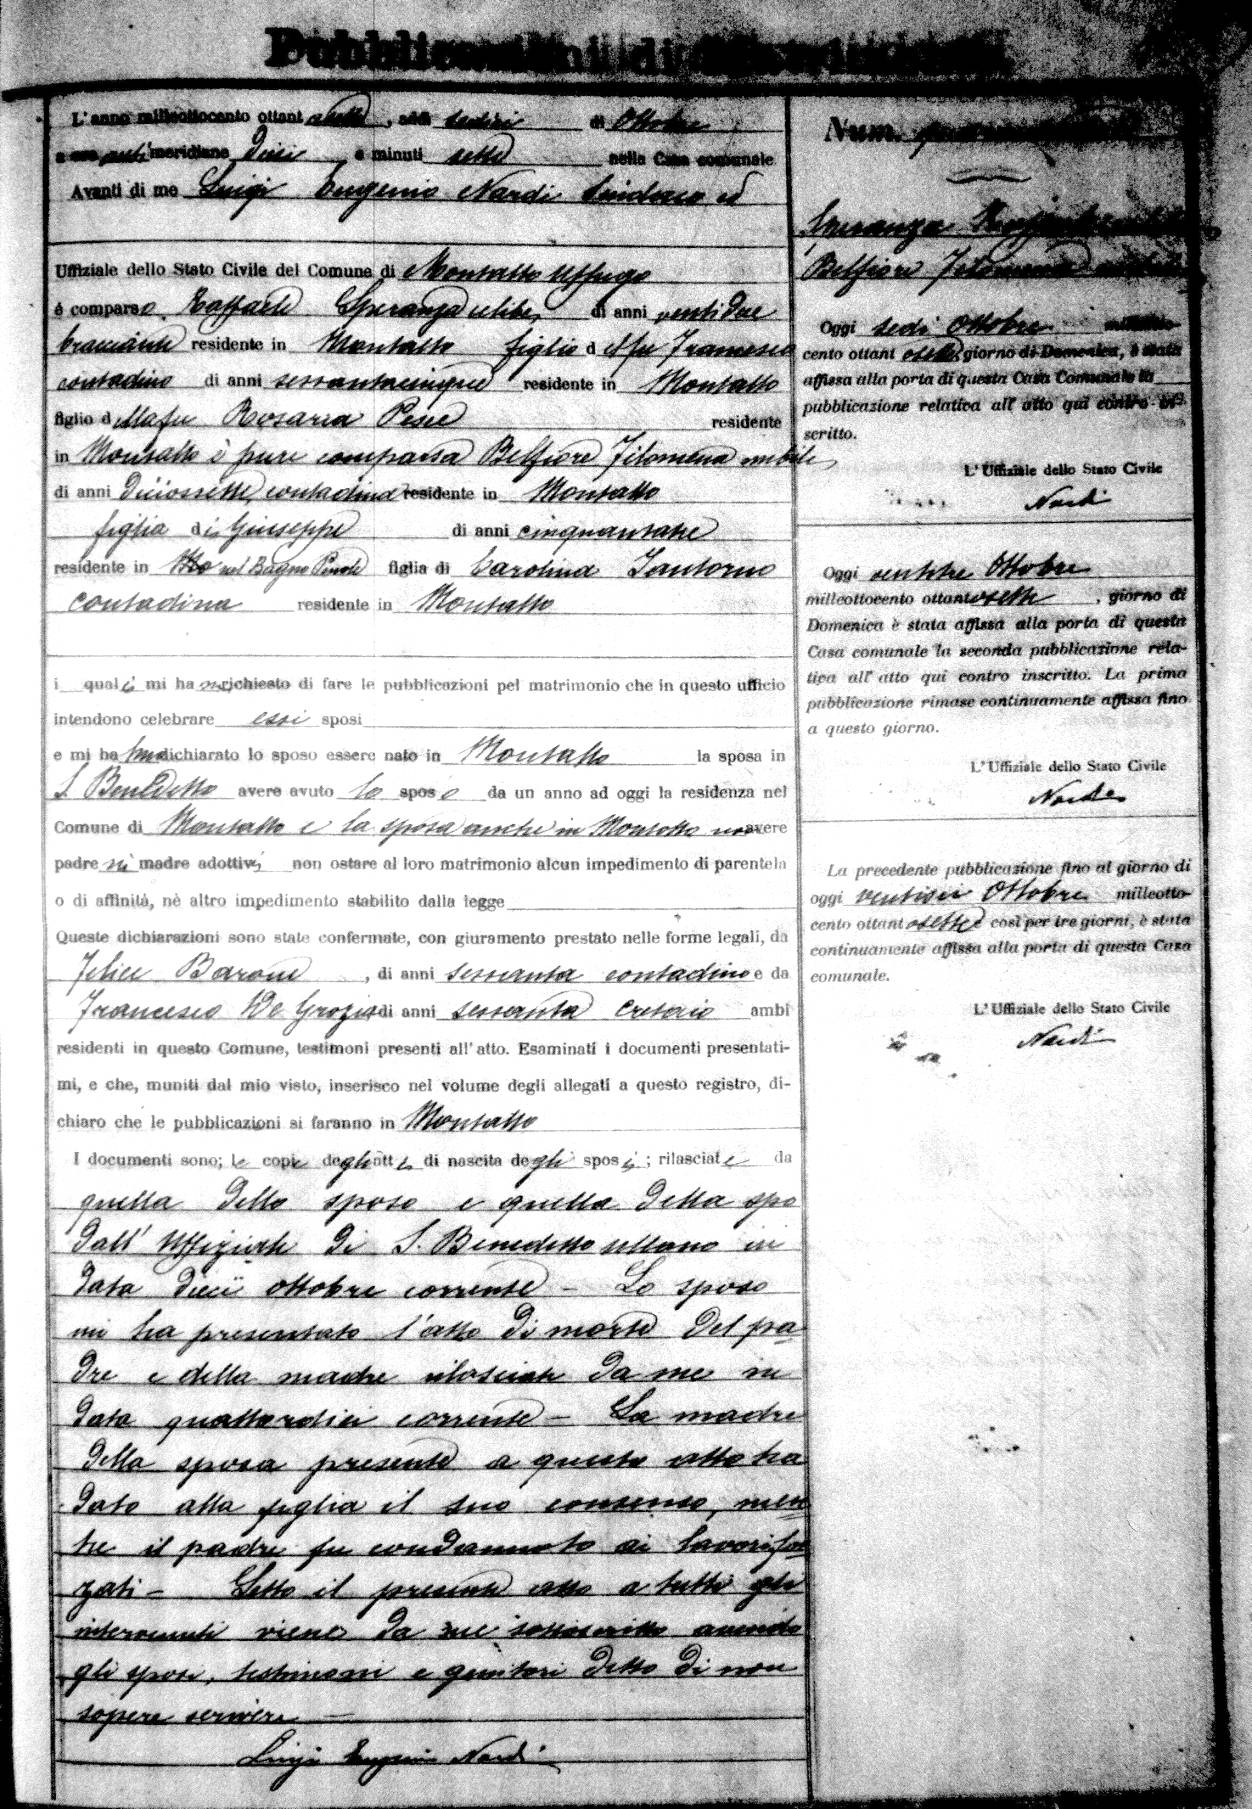 Pubblicazioni di Matrimonio
L'anno milleottocento ottantasette, addì sedici di Ottobre
a ore anti meridiane Dieci e minuti sette nella Casa comunale
Avanti di me Luigi Eugenio Nardi Sindaco ed
Uffiziale dello Stato Civile del Comune di Montalto Uffugo
é comparso Raffaele Speranza celibe, di anni ventidue
bracciante residente in Montalto figlio del fu Francesco
contadino di anni sessantacinque residente in Montalto
figlio della fu Rosaria Pesce residente
in Montalto è pure comparsa Belfiore Filomena nubile
di anni Diciossette, contadina residente in Montalto
figlia di Giuseppe di anni cinquantatre
residente in nel Bagno Penale figlia di Carolina Santoruo
contadina residente in Montalto
i quali mi hanno richiesto di fare le pubblicazioni pel matrimonio che in questo ufficio
intendono celebrare essi sposi
e mi hanno dichiarato lo sposo essere nato in Montalto la sposa in
S. Benedetto avere avuto lo sposo da un anno ad oggi la residenza nel
Comune di Montalto e la sposa anche in Montalto non avere
padre nè madre adottivi non ostare al loro matrimonio alcun impedimento di parentela
o di affinità, nè altro impedimento stabilito dalla legge
Queste dichiarazioni sono state confermate, con giuramento prestato nelle forme legali, da
Felice Barone, di anni sessanta contadino e da
Francesco De Grazia di anni sessanta ambi
residenti in questo Comune, testimoni presenti all'atto. Esaminati i documenti presentati-
mi, e che, muniti dal mio visto, inserisco nel volume degli allegati a questo registro, di-
chiaro che le pubblicazioni si faranno in Montalto
I documenti sono; le copie degli atti di nascita degli sposi; rilasciate da
quella dello sposo e quella della spo
dall'Uffiziale di S. Benedetto Ullano in
data dieci ottobre corrente – Lo sposo
mi ha presentato l'atto di morte del pa-
dre e della madre rilasciate da me in
data quattordici corrente – La madre
della sposa presente a questo atto ha
dato alla figlia il suo consenso, men
tre il padre fu condannato ai lavori for
zati – Letto il presente atto a tutti gli
intervenuti viene da me sottoscritto avendo
gli sposi, testimoni e genitori detto di non
sapere scrivere –
Luigi Eugenio Nardi
Num.
Speranza Raffaele
Belfiore Filomena nubile
Oggi sedi Ottobre milleotto-
cento ottantasette, giorno di Domenica, è stata
affissa alla porta di questa Casa Comunale la
pubblicazione relativa all'atto qui contro in-
scritto.
L'Uffiziale dello Stato Civile
Nardi
Oggi ventitre Ottobre
milleottocento ottantasette, giorno di
Domenica è stata affissa alla porta di questa
Casa comunale la seconda pubblicazione rela-
tiva all'atto qui contro inscritto. La prima
pubblicazione rimase continuamente affissa fino
a questo giorno.
L'Uffiziale dello Stato Civile
Nardi
La precedente pubblicazione fino al giorno di
oggi ventisei Ottobre milleotto-
cento ottantasette e così per tre giorni, è stata
continuamente affissa alla porta di questa Casa
comunale.
L'Uffiziale dello Stato Civile
Nardi